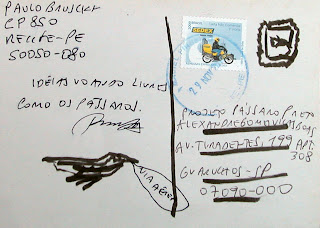 PAULO BRUSCKY
CP 850
RECIFE-PE
50050-080
IDÉIAS VOANDO LIVRES
COMO OS PÁSSAROS.
VIA AÉREA
SEDEX
PROJETO PÁSSARO PRETO
ALEXANDRE GOMES VILAS BOAS
AV. TIRADENTES, 199 APT.
308
GUARULHOS-SP
07090-000